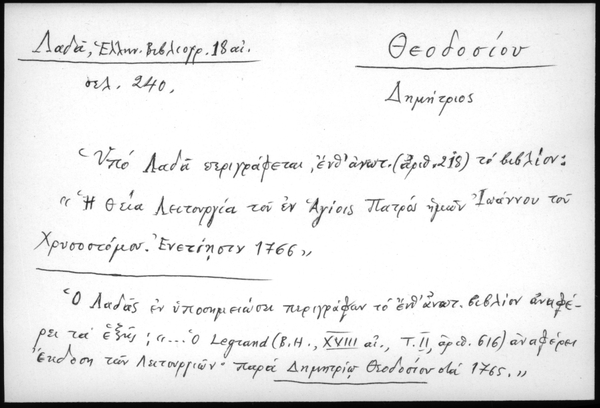 Λαδᾶ, Ἑλλην. Βιβλιογρ. 18 αἰ.
σελ. 240.
Θεοδοσίου
Δημήτριος
Ὑπό Λαδᾶ περιγράφεται, ἔνθ' ἀνωτ. (ἀριθ. 215) τό βιβλίον:
"Ἡ θεία Λειτουργία τοῦ ἐν Ἁγίοις Πατρός ἡμῶν Ἰωάννου τοῦ
Χρυσοστόμου. Ἐνετίησιν 1766"
Ὁ Λαδᾶς ἐν ὑποσημειώσει περιγράφων τό ἔνθ' ἀνωτ. βιβλίον ἀναφέ-
ρει τά ἑξῆς: "... Ὁ Legrand (B.H., XVIII αἰ., T. II, ἀριθ. 616) ἀναφέρει
ἔκδοση τῶν Λειτουργιῶν παρά Δημητρίῳ Θεοδοσίου στά 1765."